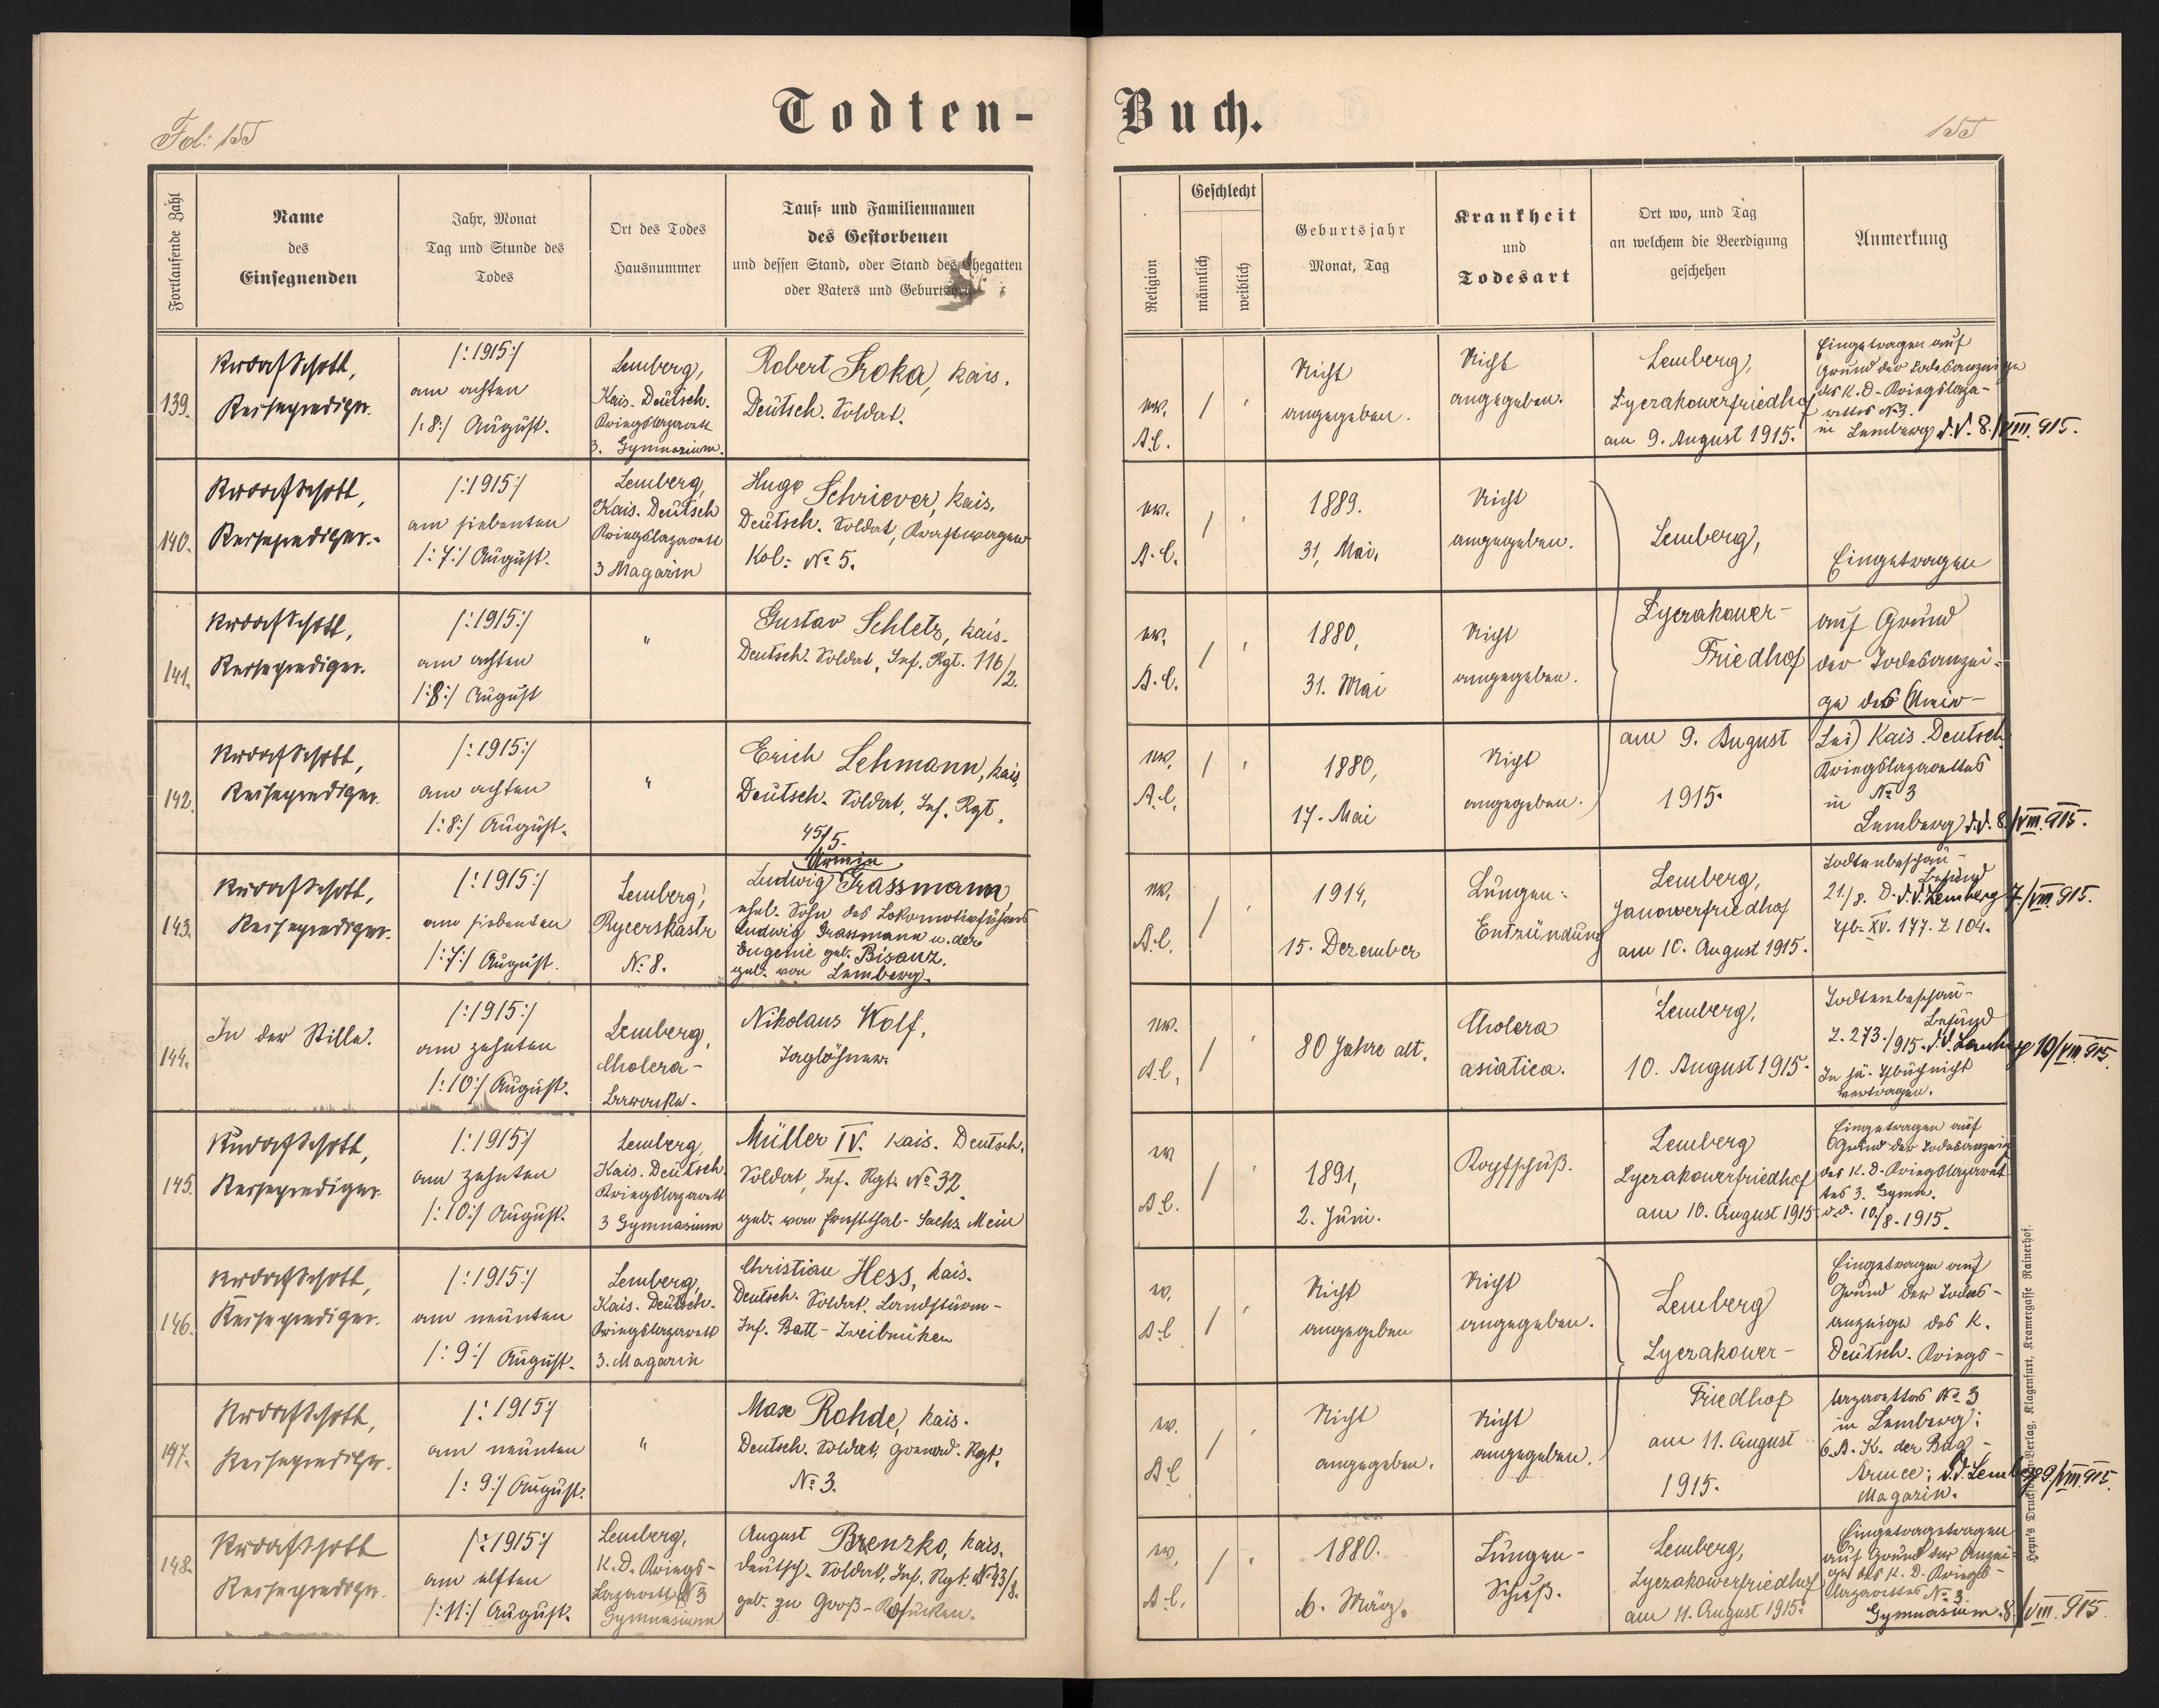 Todten-Buch.
Fol: 155
155
Fortlaufende Zahl
Name
des
Einsegnenden
Jahr, Monat
Tag und Stunde des
Todes
Ort des Todes
Hausnummer
Tauf- und Familiennamen
des Gestorbenen
und dessen Stand, oder Stand des Ehegatten
oder Vaters und Geburtsort
Religion
Geschlecht
männlich
weiblich
Geburtsjahr
Monat, Tag
Krankheit
und
Todesart
Ort wo, und Tag
an welchem die Beerdigung
geschehen
Anmerkung
139.
Reiseprediger.
/:1915:/
am achten
/:8:/ August.
Lemberg,
Kais. Deutsch.
Kriegslazarett
3. Gymnasium.
Robert Sroka, kais.
Deutsch. Soldat.
ev.
A.C.
/
Nicht
angegeben.
Nicht
angegeben.
Lemberg,
Lyczakowerfriedhof
am 9. August 1915.
Eingetragen auf
Grund der Todesanzeige
des K. D. Kriegslaza-
rettes No 3.
in Lemberg d.d. 8./VIII. 915.
140.
Reiseprediger.
/:1915:/
am siebenten
/:7:/ August.
Lemberg,
Kais. Deutsch
Kriegslazarett
3 Magazin
Hugo Schriever, kais.
Deutsch. Soldat, Kraftwagen
Kol: No 5.
ev.
A.C.
/
1889.
31. Mai.
Nicht
angegeben.
Lemberg,
Eingetragen
141.
Reiseprediger.
/:1915:/
am achten
/:8:/ August
"
Gustav Schletz, kais.
Deutsch. Soldat, Inf. Rgt. 116/2.
ev.
A.C.
/
1880,
31. Mai
Nicht
angegeben.
Lyczakower-
Friedhof
auf Grund
der Todesanzei-
ge des
142.
Reiseprediger.
/:1915:/
am achten
/:8:/ August.
"
Erich Lehmann, kais.
Deutsch. Soldat, Inf. Rgt.
45/5.
ev.
A.C.
/
1880,
17. Mai
Nicht
angegeben.
am 9. August
1915.
Kais. Deutsch
Kriegslazarettes
in No 3
Lemberg d.d. 8./VIII. 915.
143.
Reiseprediger.
/:1915:/
am siebenten
/:7:/ August.
Lemberg,
Rycerskastr
No 8.
Armin
Ludwig Grassmann,
ehel. Sohn des Lokomotivführers
Ludwig Grassmann u. der
Eugenie geb. Bisanz.
geb. von Lemberg.
ev.
A.C.
/
1914,
15. Dezember
Lungen-
Entzündung
Lemberg,
Janowerfriedhof
am 10. August 1915.
Todtenbeschau-
befund
21./8. D. d.d. Lemberg 7./VIII. 915.
XV. 177. Z 104.
144.
In der Stille.
/:1915:/
am zehnten
/:10:/ August.
Lemberg,
Cholera-
Baracke.
Nikolaus Wolf,
Taglöhner.
ev.
A.C.
/
80 Jahre alt.
Cholera
asiatica.
Lemberg,
10. August 1915.
Todtenbeschau-
befund
Z. 273./915. d.d. Lemberg 10/VIII 915.
145.
Reiseprediger
/:1915:/
am zehnten
/:10:/ August.
Lemberg,
Kais. Deutsch
Kriegslazarett
3 Gymnasium
Müller IV. kais. Deutsch.
Soldat, Inf. Rgt. No 32.
geb. von Ernstthal - Sachs. Mein
ev
A.C.
/
1891,
2. Juni.
Kopfschuß.
Lemberg
Lyczakowerfriedhof
am 10. August 1915
Eingetragen auf
Grund der Todesanzeige
des K. D. Kriegslazaret
tes 3. Gymn.
d.d. 10/8. 1915.
146.
Reiseprediger.
/:1915:/
am neunten
/:9:/ August.
Lemberg,
Kais. Deutsch.
Kriegslazarett
3. Magazin
Christian Hess, kais.
Deutsch. Soldat. Landsturm-
Inf. Batl - Zweibrücken
ev.
A.C
/
Nicht
angegeben
Nicht
angegeben.
Lemberg
Lyczakower-
Eingetragen auf
Grund der Todes-
anzeige des K.
Deutsch. Kriegs-
147.
Reiseprediger.
/:1915:/
am neunten
/:9:/ August.
"
Max Rohde, kais.
Deutsch. Soldat, Grenad. Rgt.
No 3.
ev.
A.C
/
Nicht
angegeben.
Nicht
angegeben.
Friedhof
am 11. August
1915.
lazarettes No 3
in Lemberg;
der Bug-
Armee; d.d. Lemberg 9/VIII 915.
Magazin.
148.
Reiseprediger.
/:1915:/
am elften
/:11:/ August.
Lemberg,
K. D. Kriegs-
Lazarett No 3
Gymnasium
August Brenzko, kais.
deutsch. Soldat, Inf. Rgt. No 43/8.
ev.
A.C.
/
1880.
6. März.
Lungen-
Schuß.
Lemberg,
Lyczakowerfriedhof
am 11. August 1915.
Eingetragetragen
auf Grund der Anzei-
ge des K. D. Kriegs-
lazarettes No 3
Gymnasium 8./VIII. 915.
Heyn's Druckerei-Verlag, Klagenfurt, Kramergasse Rainerhof.